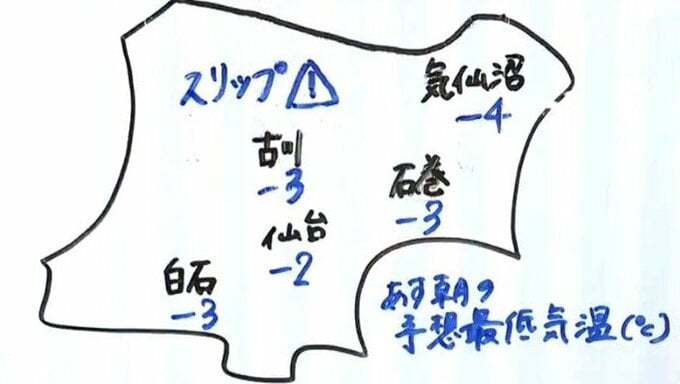 スリップ⚠
気仙沼
-4
古川
-3
石巻
-3
仙台
-2
白石
-3
あす朝の
予想最低気温(℃)